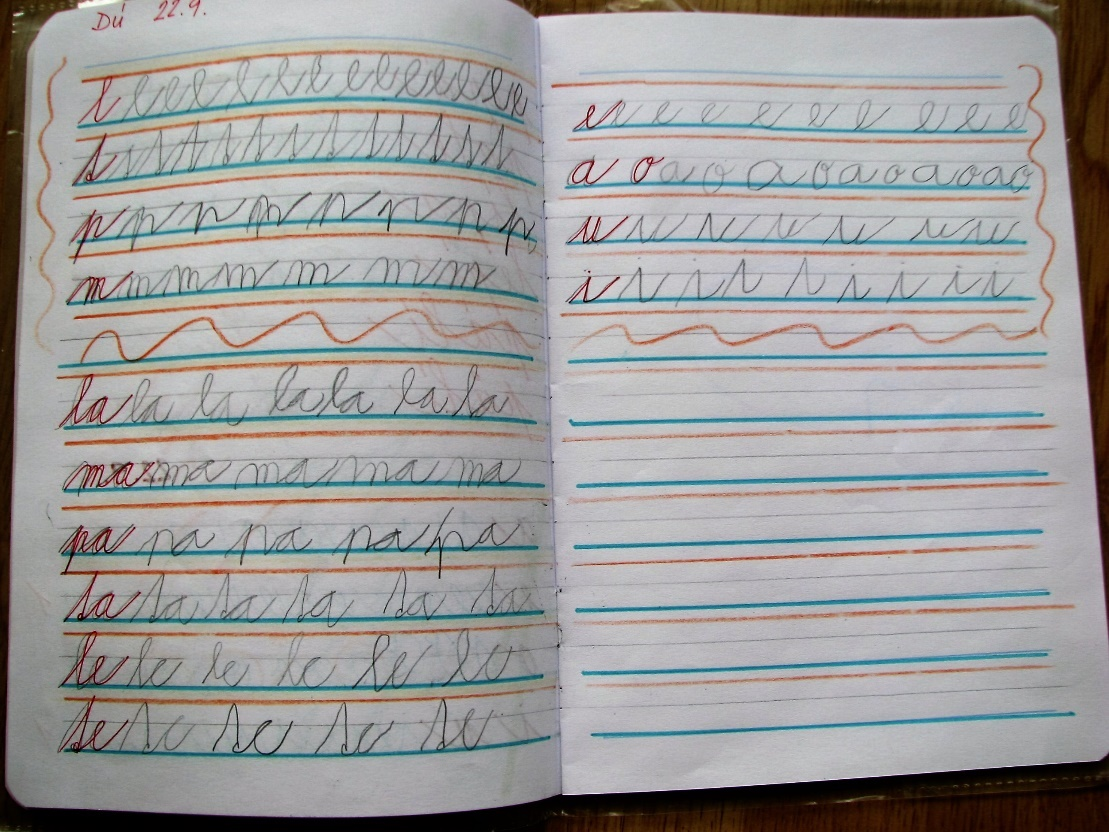 Dú 22.9.
l l l l l l l l l l l l l l
s s s s s s s s s s s s
p p p p p p p p
m m m m m m m
la la la la la la la
ma ma ma ma ma
pa pa pa pa pa
sa sa sa sa sa sa
le le le le le le
se se se se se
e e e e e e e e e e
a o a o a o a o a o a o
u u u u u u u
i i i i i i i i i